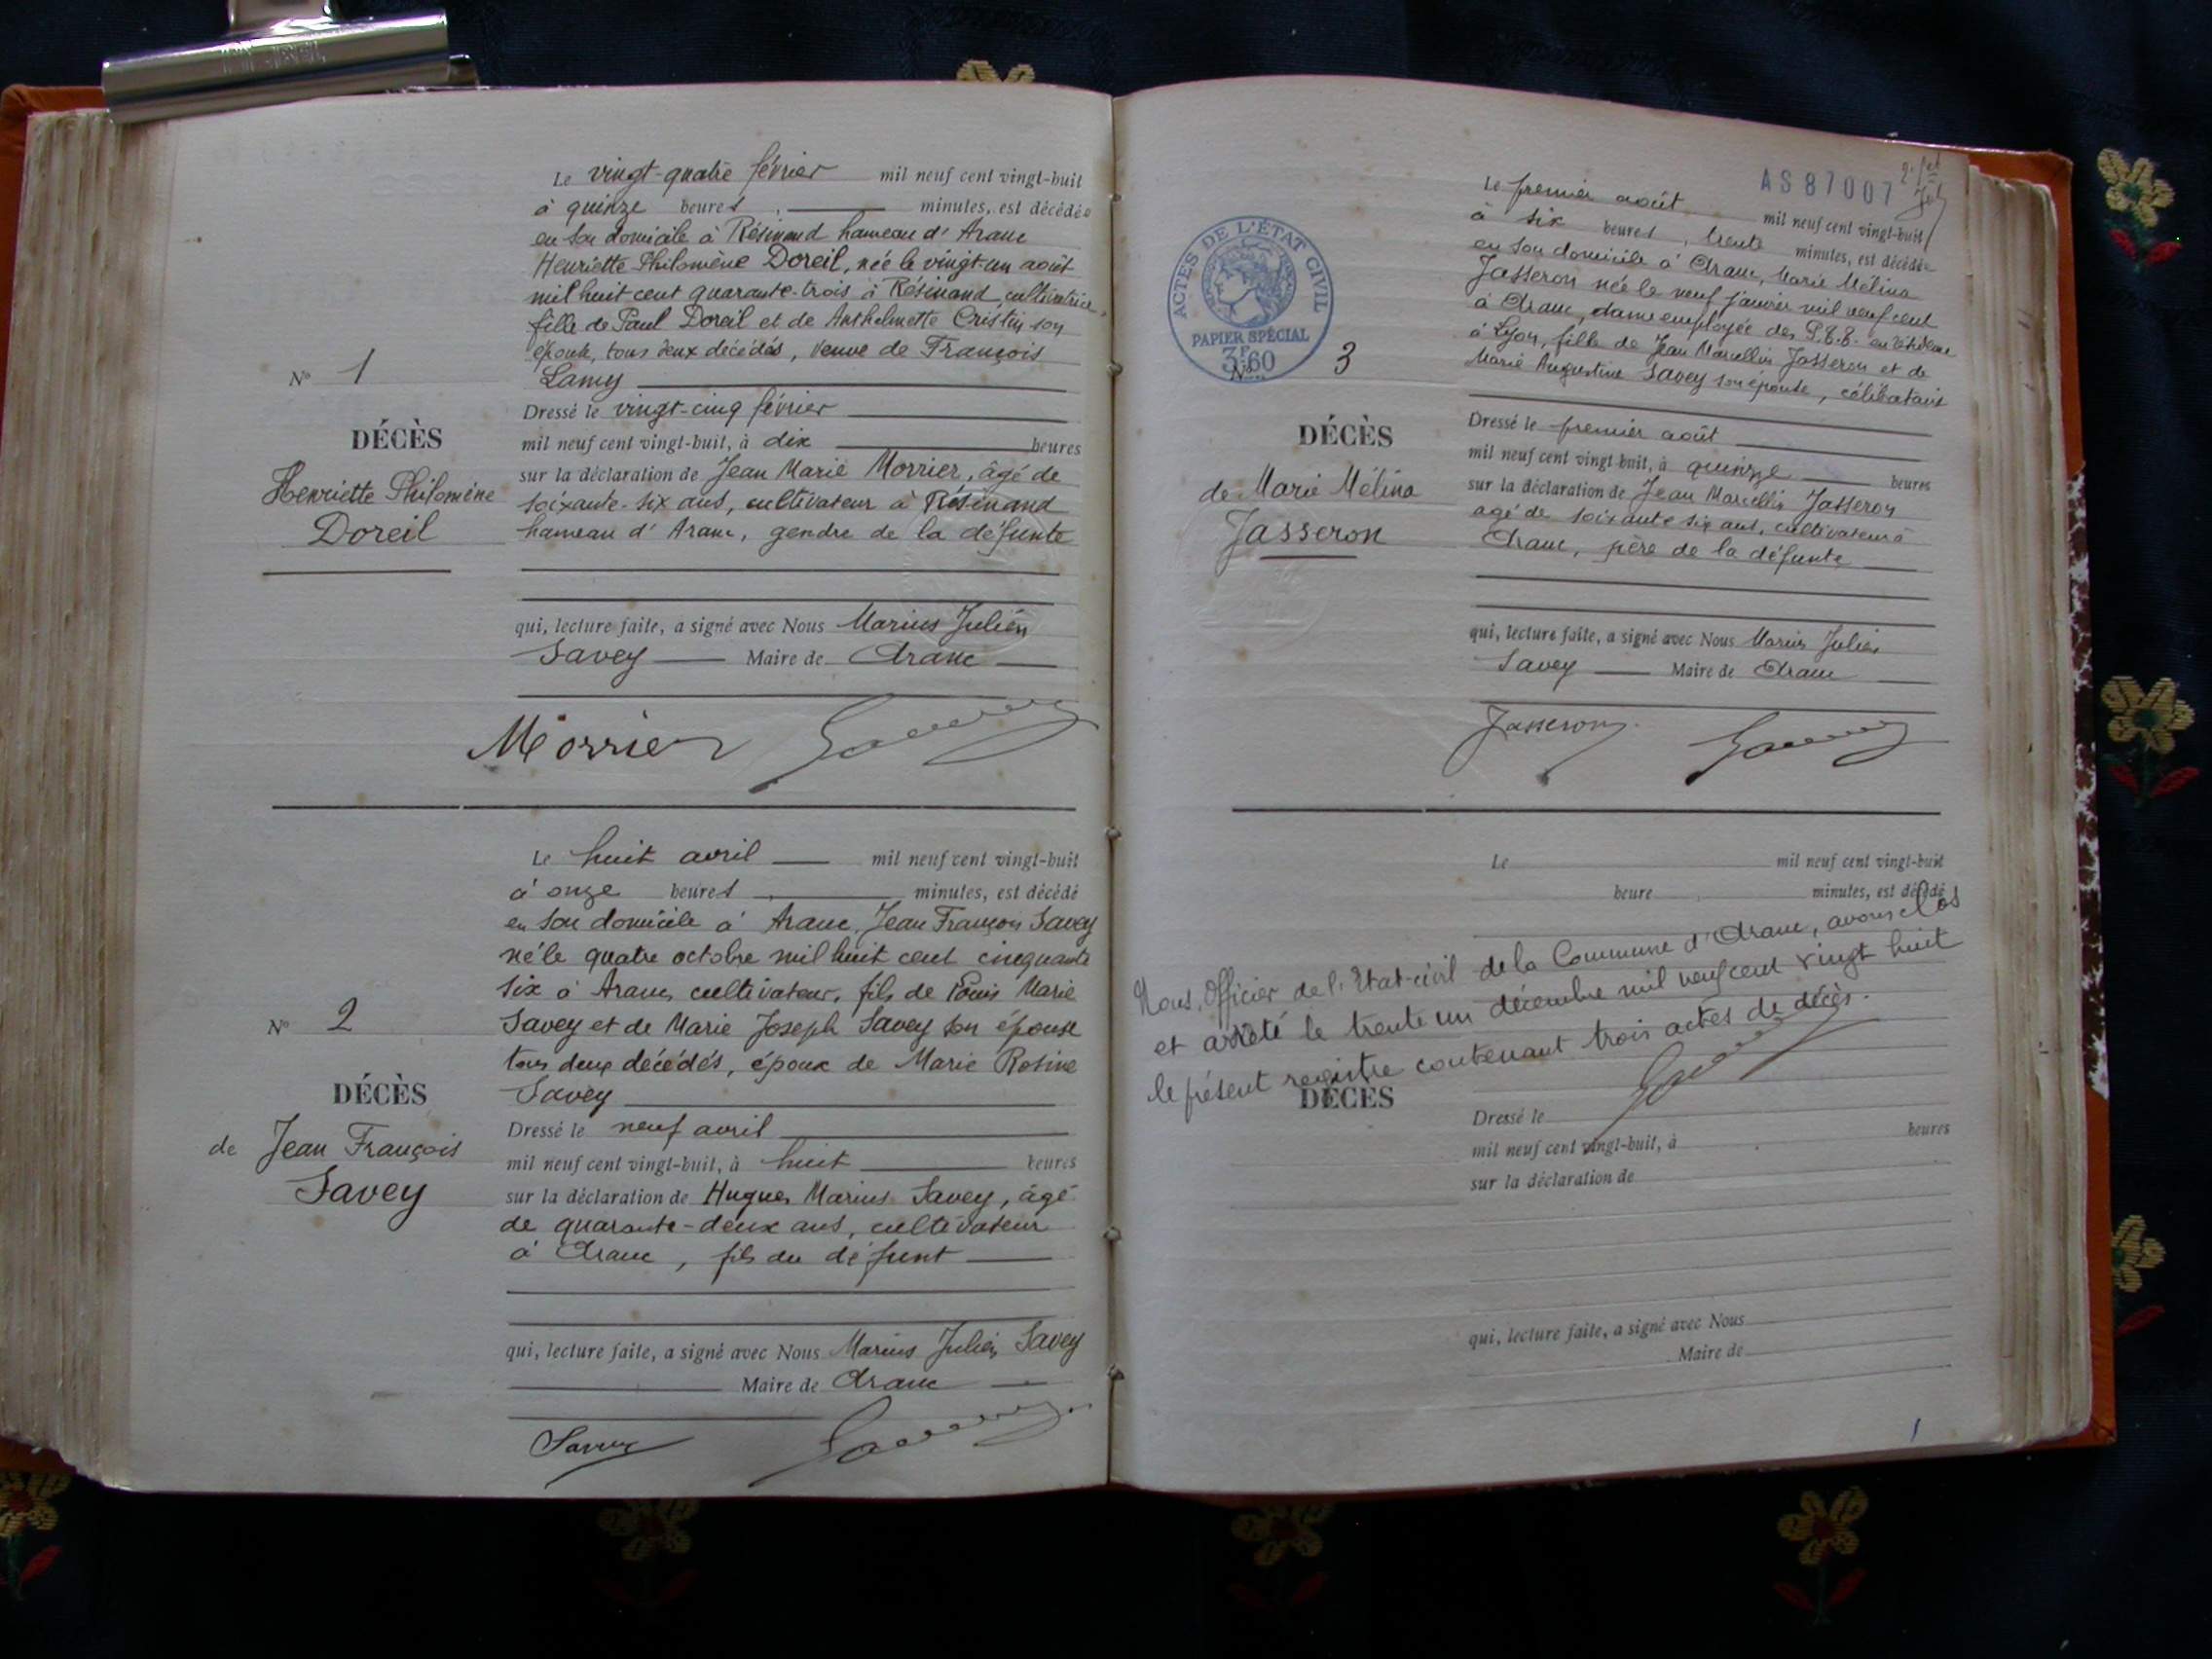 Le vingt-quatre février mil neuf cent vingt-huit
à quinze heures, minutes, est décédée
en son domicile à Résinand hameau d'Aranc
Henriette Philomène Doreil, née le vingt-un août
mil huit cent quarante-trois à Résinand, cultivatrice,
fille de Paul Doreil et de Anthelmette Cristin son
épouse, tous deux décédés, veuve de François
Lamy
N° 1
DÉCÈS
Henriette Philomène
Doreil
Dressé le vingt-cinq février
mil neuf cent vingt-huit, à dix heures
sur la déclaration de Jean Marie Morrier, âgé de
soixante-six ans, cultivateur à Résinand
hameau d'Aranc, gendre de la défunte
qui, lecture faite, a signé avec Nous Marius Julien
Savey Maire de Aranc
Morrier Savey
Le huit avril mil neuf cent vingt-huit
à onze heures, minutes, est décédé
en son domicile à Aranc, Jean François Savey
né le quatre octobre mil huit cent cinquante
six à Aranc, cultivateur, fils de Louis Marie
Savey et de Marie Joseph Savey son épouse
tous deux décédés, époux de Marie Rosine
Savey
N° 2
DÉCÈS
de Jean François
Savey
Dressé le neuf avril
mil neuf cent vingt-huit, à huit heures
sur la déclaration de Hugues Marius Savey, âgé
de quarante-deux ans, cultivateur
à Aranc, fils du défunt
qui, lecture faite, a signé avec Nous Marius Julien Savey
Maire de Aranc
Savey Savey
AS 87007
ACTES DE L'ÉTAT CIVIL
PAPIER SPÉCIAL
3F60
Le premier août mil neuf cent vingt-huit
à six heures, trente minutes, est décédée
en son domicile à Aranc, Marie Mélina
Jasseron née le neuf janvier mil neuf cent
à Aranc, dame employée des P.T.T. en résidence
à Lyon, fille de Jean Marcellin Jasseron et de
Marie Augustine Savey son épouse, célibataire
N° 3
DÉCÈS
de Marie Mélina
Jasseron
Dressé le premier août
mil neuf cent vingt-huit, à quinze heures
sur la déclaration de Jean Marcellin Jasseron
âgé de soixante six ans, cultivateur à
Aranc, père de la défunte
qui, lecture faite, a signé avec Nous Marius Julien
Savey Maire de Aranc
Jasseron Savey
Le mil neuf cent vingt-huit
heure, minutes, est décédé
Nous, Officier de l'Etat-civil de la Commune d'Aranc, avons clos
et arrêté le trente un décembre mil neuf cent vingt huit
le présent registre contenant trois actes de décès.
Savey
DÉCÈS
Dressé le
mil neuf cent vingt-huit, à heures
sur la déclaration de
qui, lecture faite, a signé avec Nous
Maire de